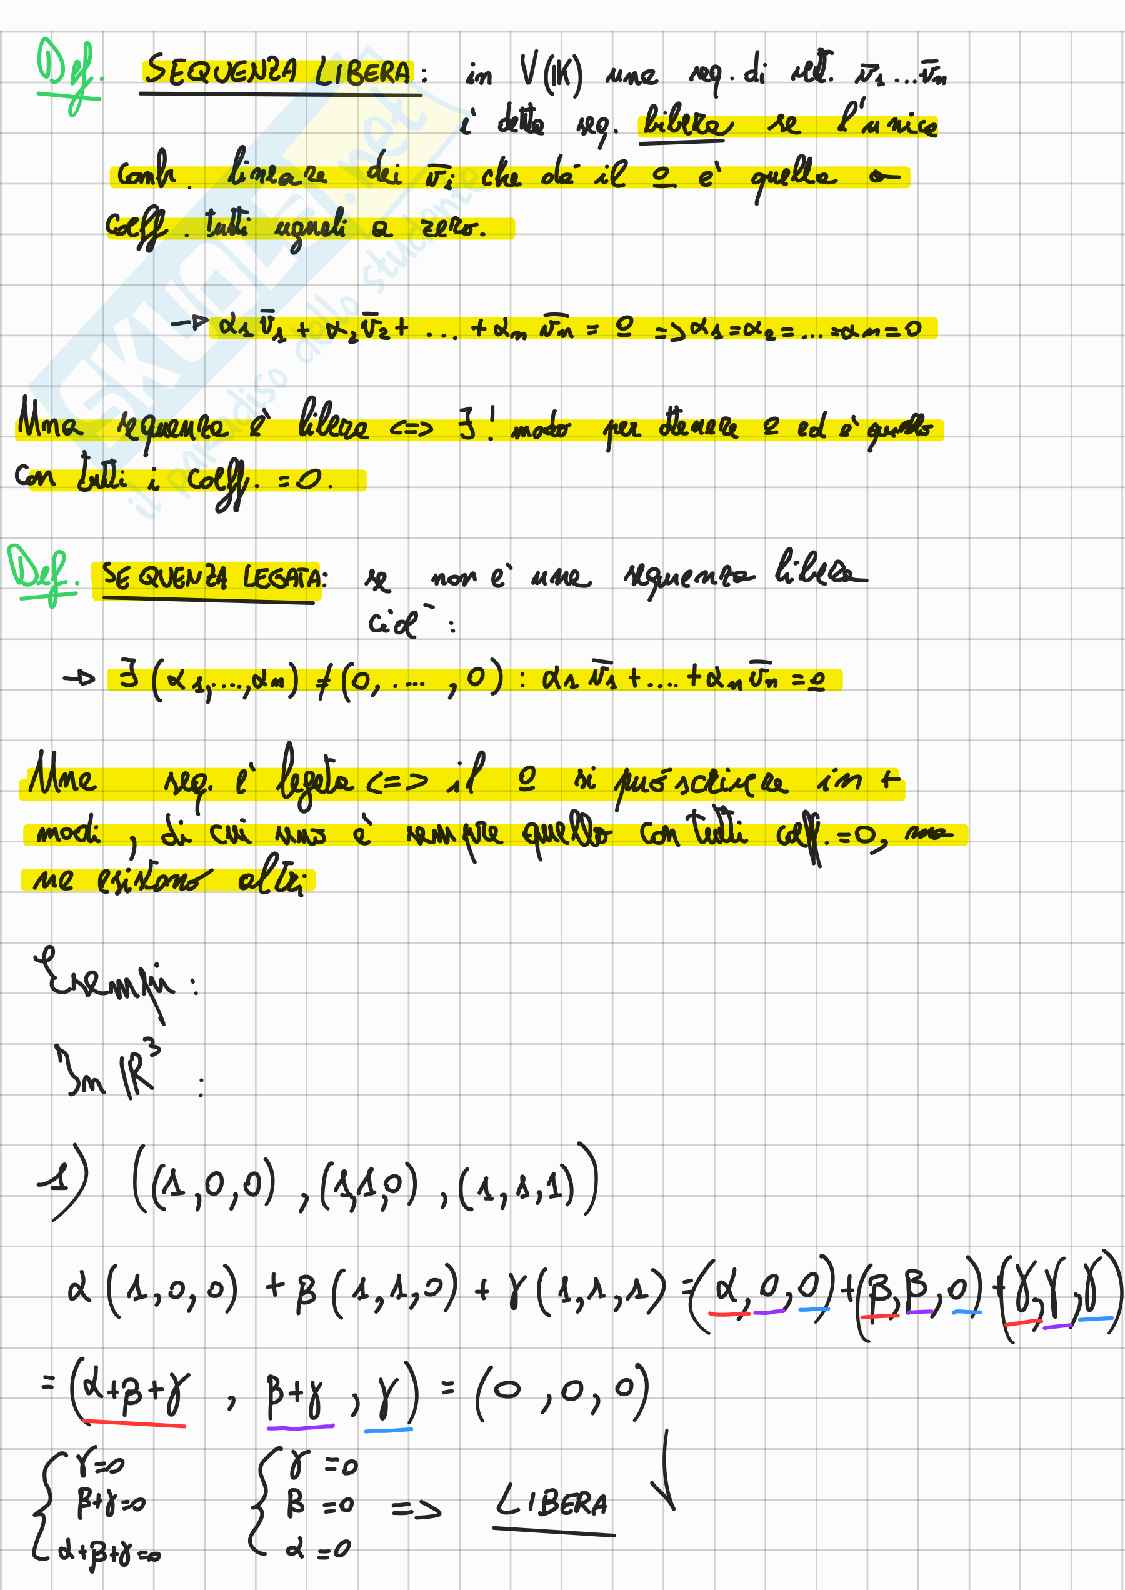 Def. SEQUENZA LIBERA: in V(IK) una seq. di vett. v̄1 ... v̄n
è detta seq. libera se l'unica
comb. lineare dei v̄i che dà il 0 è quella a
coeff. tutti uguali a zero.
→ α1 v̄1 + α2 v̄2 + ... + αn v̄n = 0 => α1=α2=...=αn=0
Una sequenza è libera <=> ∃! modo per ottenere 0 ed è quello
con tutti i coeff. = 0.
Def. SEQUENZA LEGATA: se non è una sequenza libera
cioè:
→ ∃ (α1,...,αn) ≠ (0, ... , 0) : α1 v̄1 + ... + αn v̄n = 0
Una seq. è legata <=> il 0 si può scrivere in +
modi, di cui uno è sempre quello con tutti coeff. = 0, ma
ne esistono altri
Esempi:
In ℝ³ :
1) ((1,0,0) , (1,1,0) , (1,1,1))
α (1,0,0) + β (1,1,0) + γ (1,1,1) = (α,0,0) + (β,β,0) + (γ,γ,γ)
= (α+β+γ , β+γ , γ) = (0,0,0)
{ γ=0 { γ=0
β+γ=0 β=0 => LIBERA
α+β+γ=0 α=0
SKUOLA.net
il paradiso dello studente